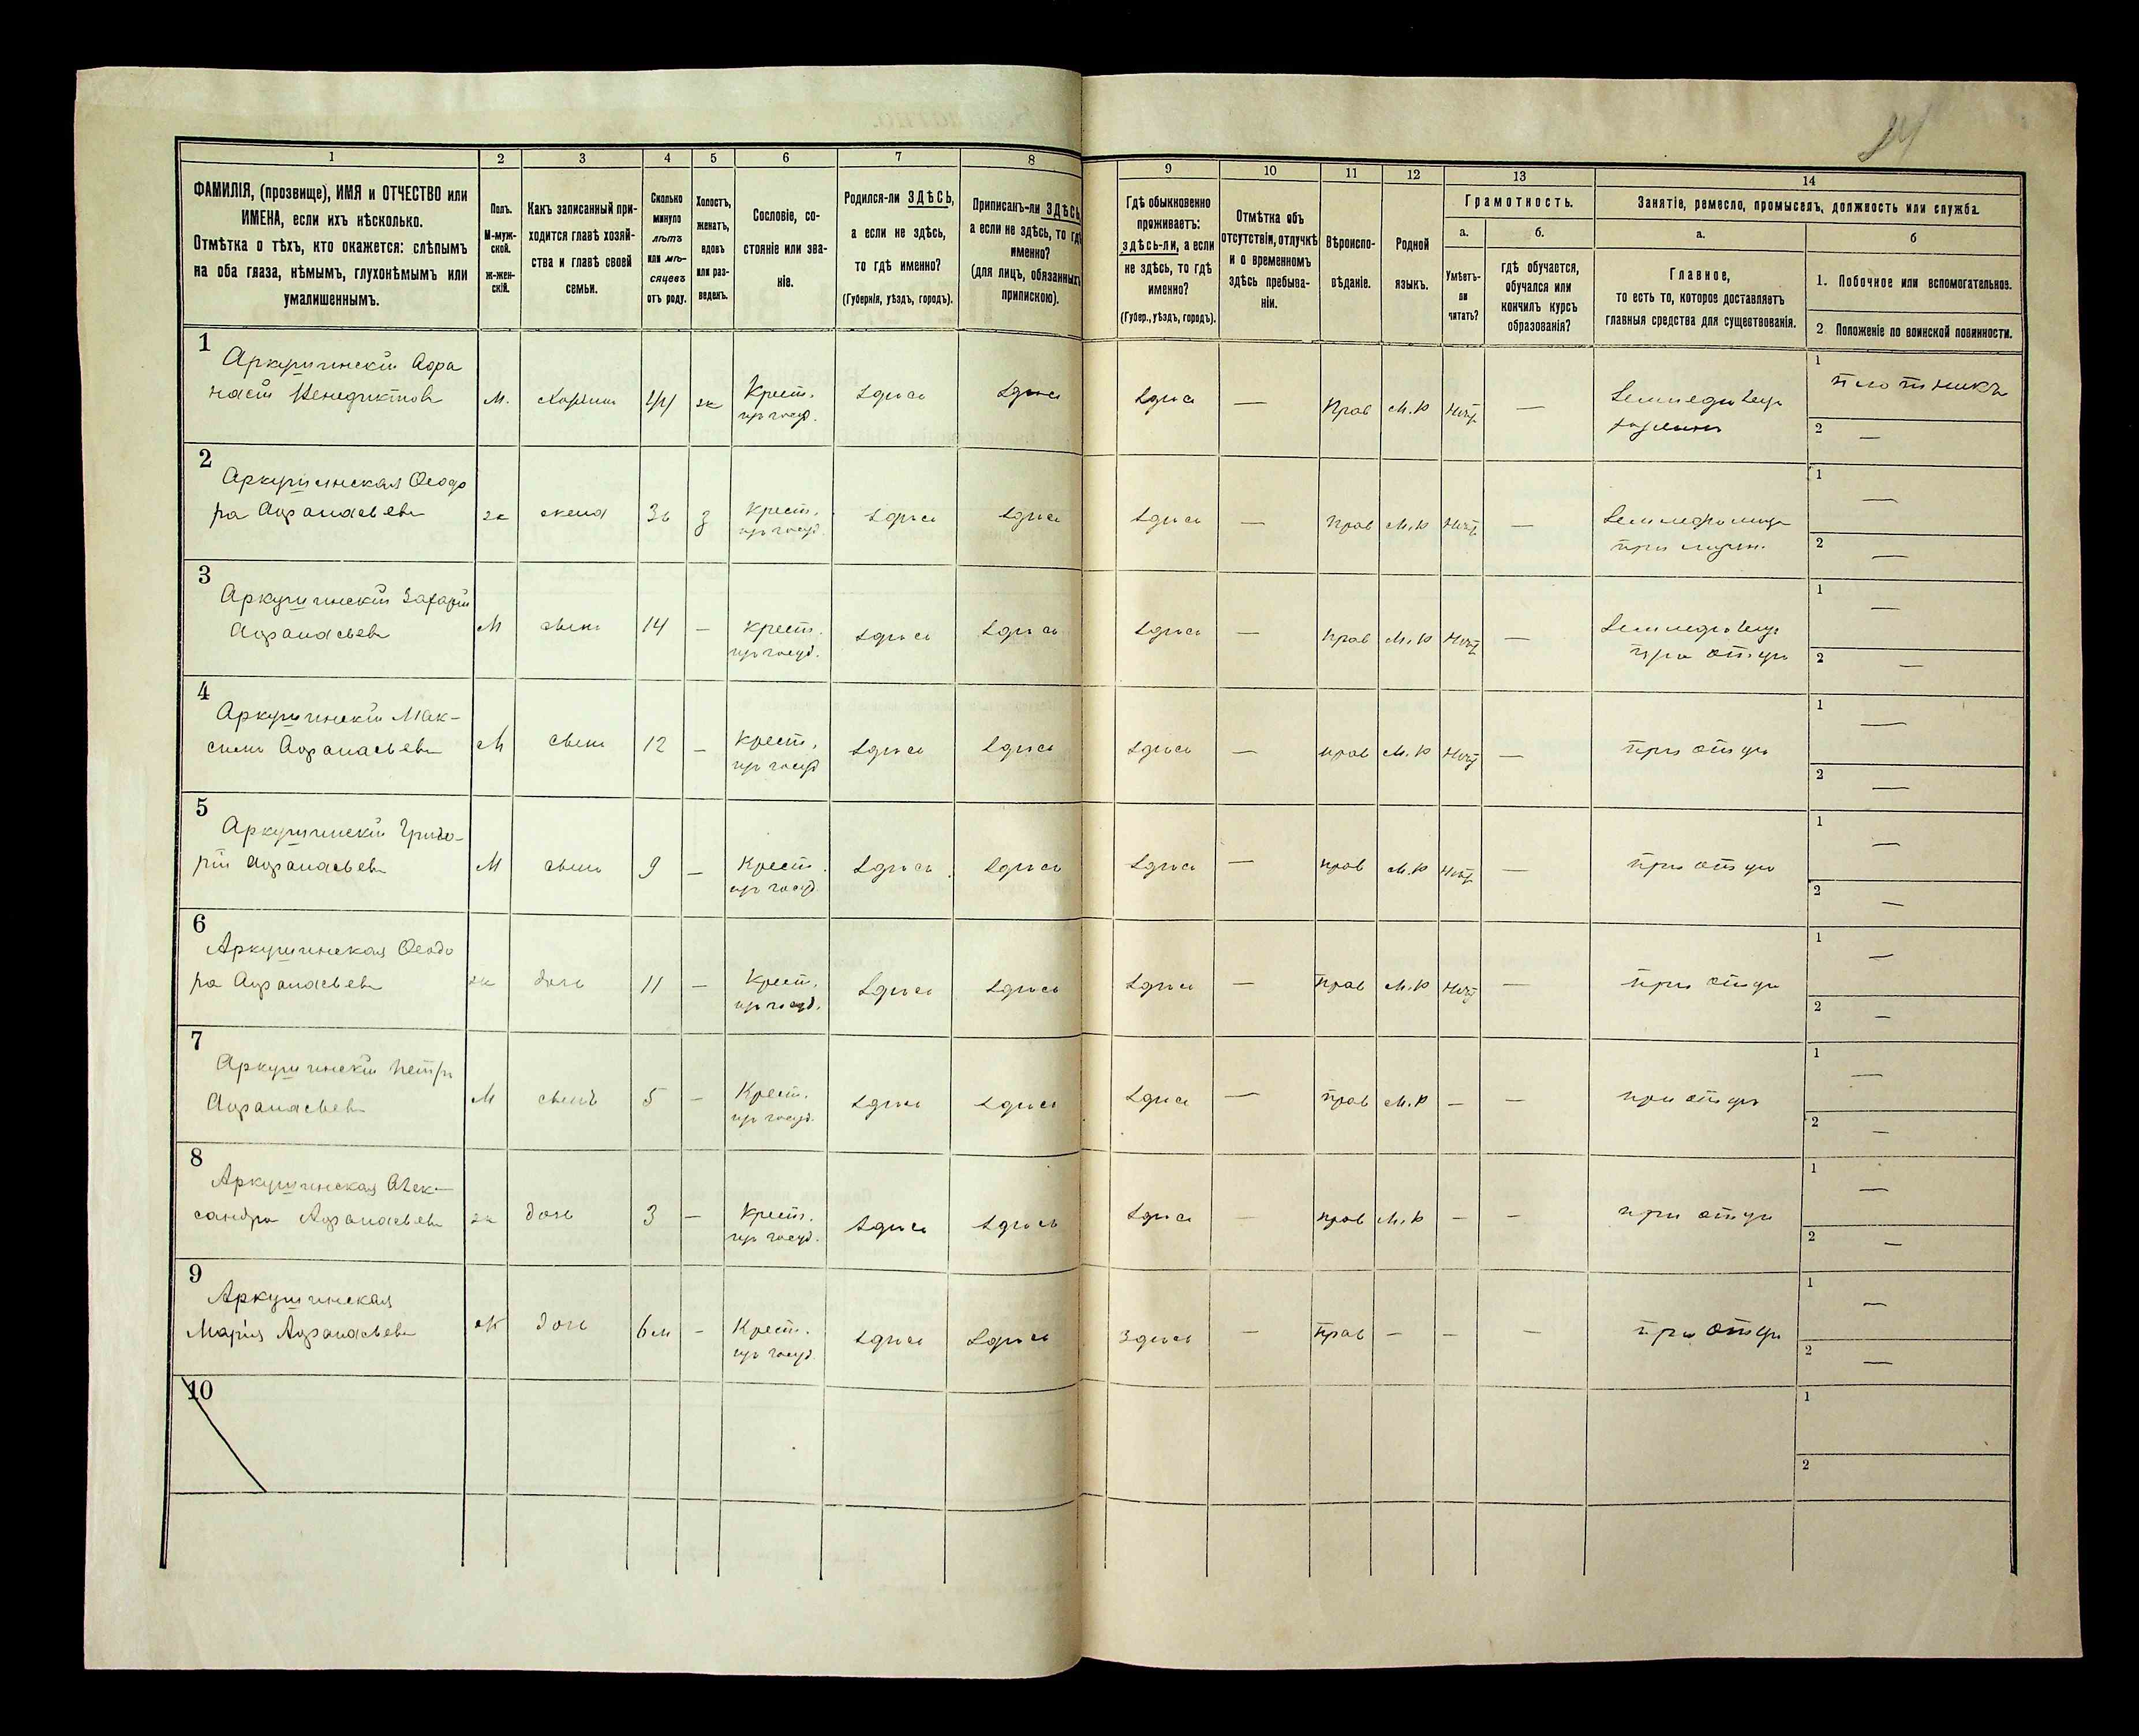 24
1
2
3
4
5
6
7
8
9
10
11
12
13
14
ФАМИЛІЯ, (прозвище), ИМЯ и ОТЧЕСТВО или
ИМЕНА, если ихъ нѣсколько.
Отмѣтка о тѣхъ, кто окажется: слѣпымъ
на оба глаза, нѣмымъ, глухонѣмымъ или
умалишеннымъ.
Полъ.
М-муж-
ской.
ж-жен-
скій.
Какъ записанный при-
ходится главѣ хозяй-
ства и главѣ своей
семьи.
Сколько
минуло
лѣтъ
или мѣ-
сяцевъ
отъ роду.
Холостъ,
женатъ,
вдовъ
или раз-
веденъ.
Сословіе, со-
стояніе или зва-
ніе.
Родился-ли ЗДѢСЬ,
а если не здѣсь,
то гдѣ именно?
(Губернія, уѣздъ, городъ).
Приписанъ-ли ЗДѢСЬ,
а если не здѣсь, то гдѣ
именно?
(для лицъ, обязанныхъ
припиской).
Гдѣ обыкновенно
проживаетъ:
здѣсь-ли, а если
не здѣсь, то гдѣ
именно?
(Губер., уѣздъ, городъ).
Отмѣтка объ
отсутствіи, отлучкѣ
и о временномъ
здѣсь пребыва-
ніи.
Вѣроиспо-
вѣданіе.
Родной
языкъ.
Грамотность.
а.
Умѣетъ-
ли
читать?
б.
гдѣ обучается,
обучался или
кончилъ курсъ
образованія?
Занятіе, ремесло, промыселъ, должность или служба.
а.
Главное,
то есть то, которое доставляетъ
главныя средства для существованія.
б
1. Побочное или вспомогательное.
2. Положеніе по воинской повинности.
1
Аркушинскій Афа
насій Венедиктовъ
М. хозяинъ 44 ж Крест. Здѣсь Здѣсь Здѣсь — Прав М.Р нѣтъ — Земледѣлецъ
из госуд. хозяинъ
1 плотникъ
2 —
2
Аркушинская Ѳеодо
ра Афанасьева
ж жена 36 з Крест. Здѣсь Здѣсь Здѣсь — Прав М.Р нѣтъ —
из госуд. при
1 —
2 —
3
Аркушинскій Захарій
Афанасьевъ
М сынъ 14 — Крест. Здѣсь Здѣсь Здѣсь — Прав М.Р нѣтъ — Земледѣлецъ
из госуд. при отцѣ
1 —
2 —
4
Аркушинскій Мак-
симъ Афанасьевъ
М сынъ 12 — Крест. Здѣсь Здѣсь Здѣсь — прав М.Р нѣтъ — при отцѣ
из госуд
1 —
2 —
5
Аркушинскій Григо-
рій Афанасьевъ
М сынъ 9 — Крест. Здѣсь Здѣсь Здѣсь — прав М.Р нѣтъ — при отцѣ
из госуд.
1 —
2 —
6
Аркушинская Ѳеодо
ра Афанасьева
ж дочь 11 — Крест. Здѣсь Здѣсь Здѣсь — прав М.Р нѣтъ — при отцѣ
из госуд.
1 —
2 —
7
Аркушинскій Петръ
Афанасьевъ
М сынъ 5 — Крест. Здѣсь Здѣсь Здѣсь — прав М.Р — — при отцѣ
из госуд.
1 —
2 —
8
Аркушинская Алек-
сандра Афанасьева
ж дочь 3 — Крест. Здѣсь Здѣсь Здѣсь — прав М.Р — — при отцѣ
из госуд.
1 —
2 —
9
Аркушинская
Марія Афанасьева
Ж дочь 6м — Крест. Здѣсь Здѣсь Здѣсь — прав — — — при отцѣ
из госуд.
1 —
2 —
10
1
2